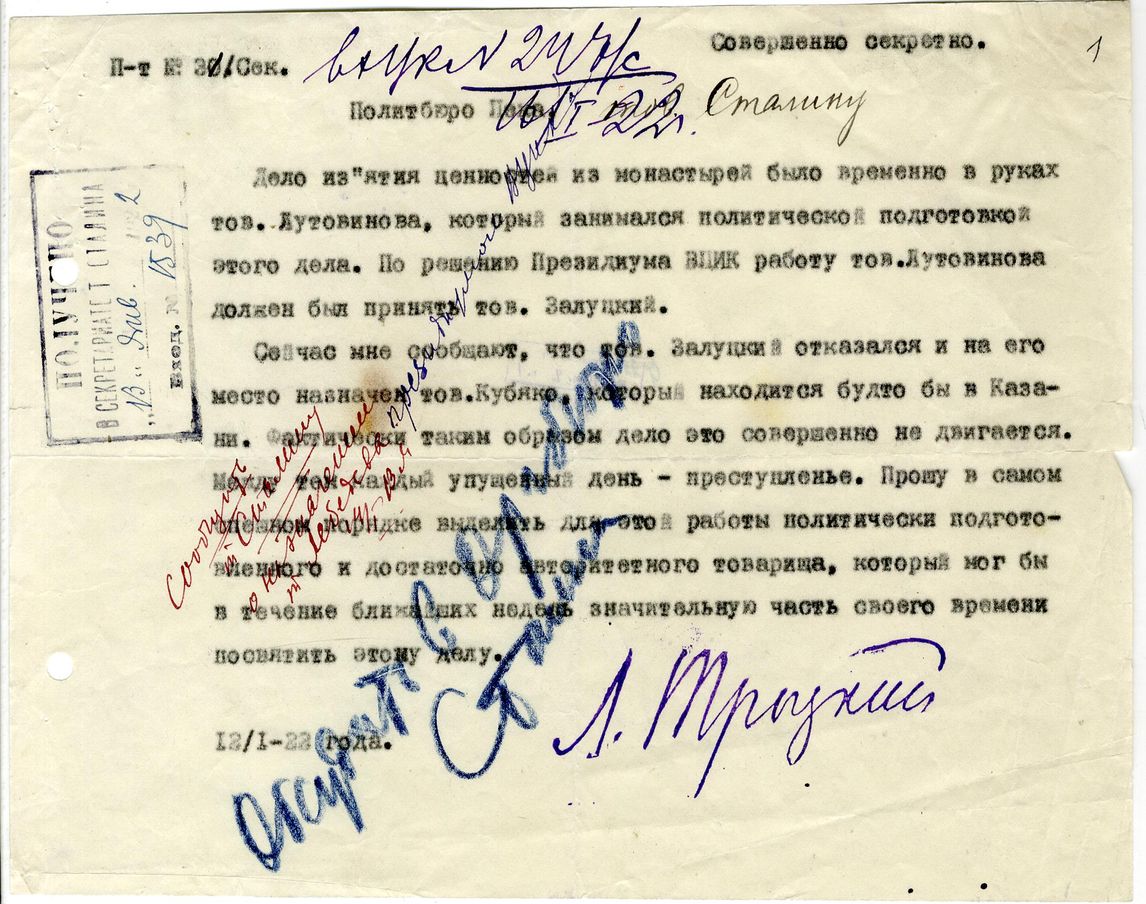 Совершенно секретно.
1
П-т № 31/Сек.
Политбюро Цека. тов Сталину
ПОЛУЧЕНО
В СЕКРЕТАРИАТЕ Т СТАЛИНА
„13" Янв. 2
Вход. № 1539
Дело из"ятия ценностей из монастырей было временно в руках
тов. Лутовинова, который занимался политической подготовкой
этого дела. По решению Президиума ВЦИК работу тов.Лутовинова
должен был принять тов. Залуцкий.
Сейчас мне сообщают, что тов. Залуцкий отказался и на его
место назначен тов.Кубяко, который находится будто бы в Каза-
ни. Фактически таким образом дело это совершенно не двигается.
Между тем каждый упущенный день – преступленье. Прошу в самом
порядке выделить для этой работы политически подгото-
вленного и достаточно авторитетного товарища, который мог бы
в течение ближайших недель значительную часть своего времени
посвятить этому делу.
Л. Троцкий
12/I-22 года.
Сообщить
т Сталину
о назначении
т Лебедева
Сталин